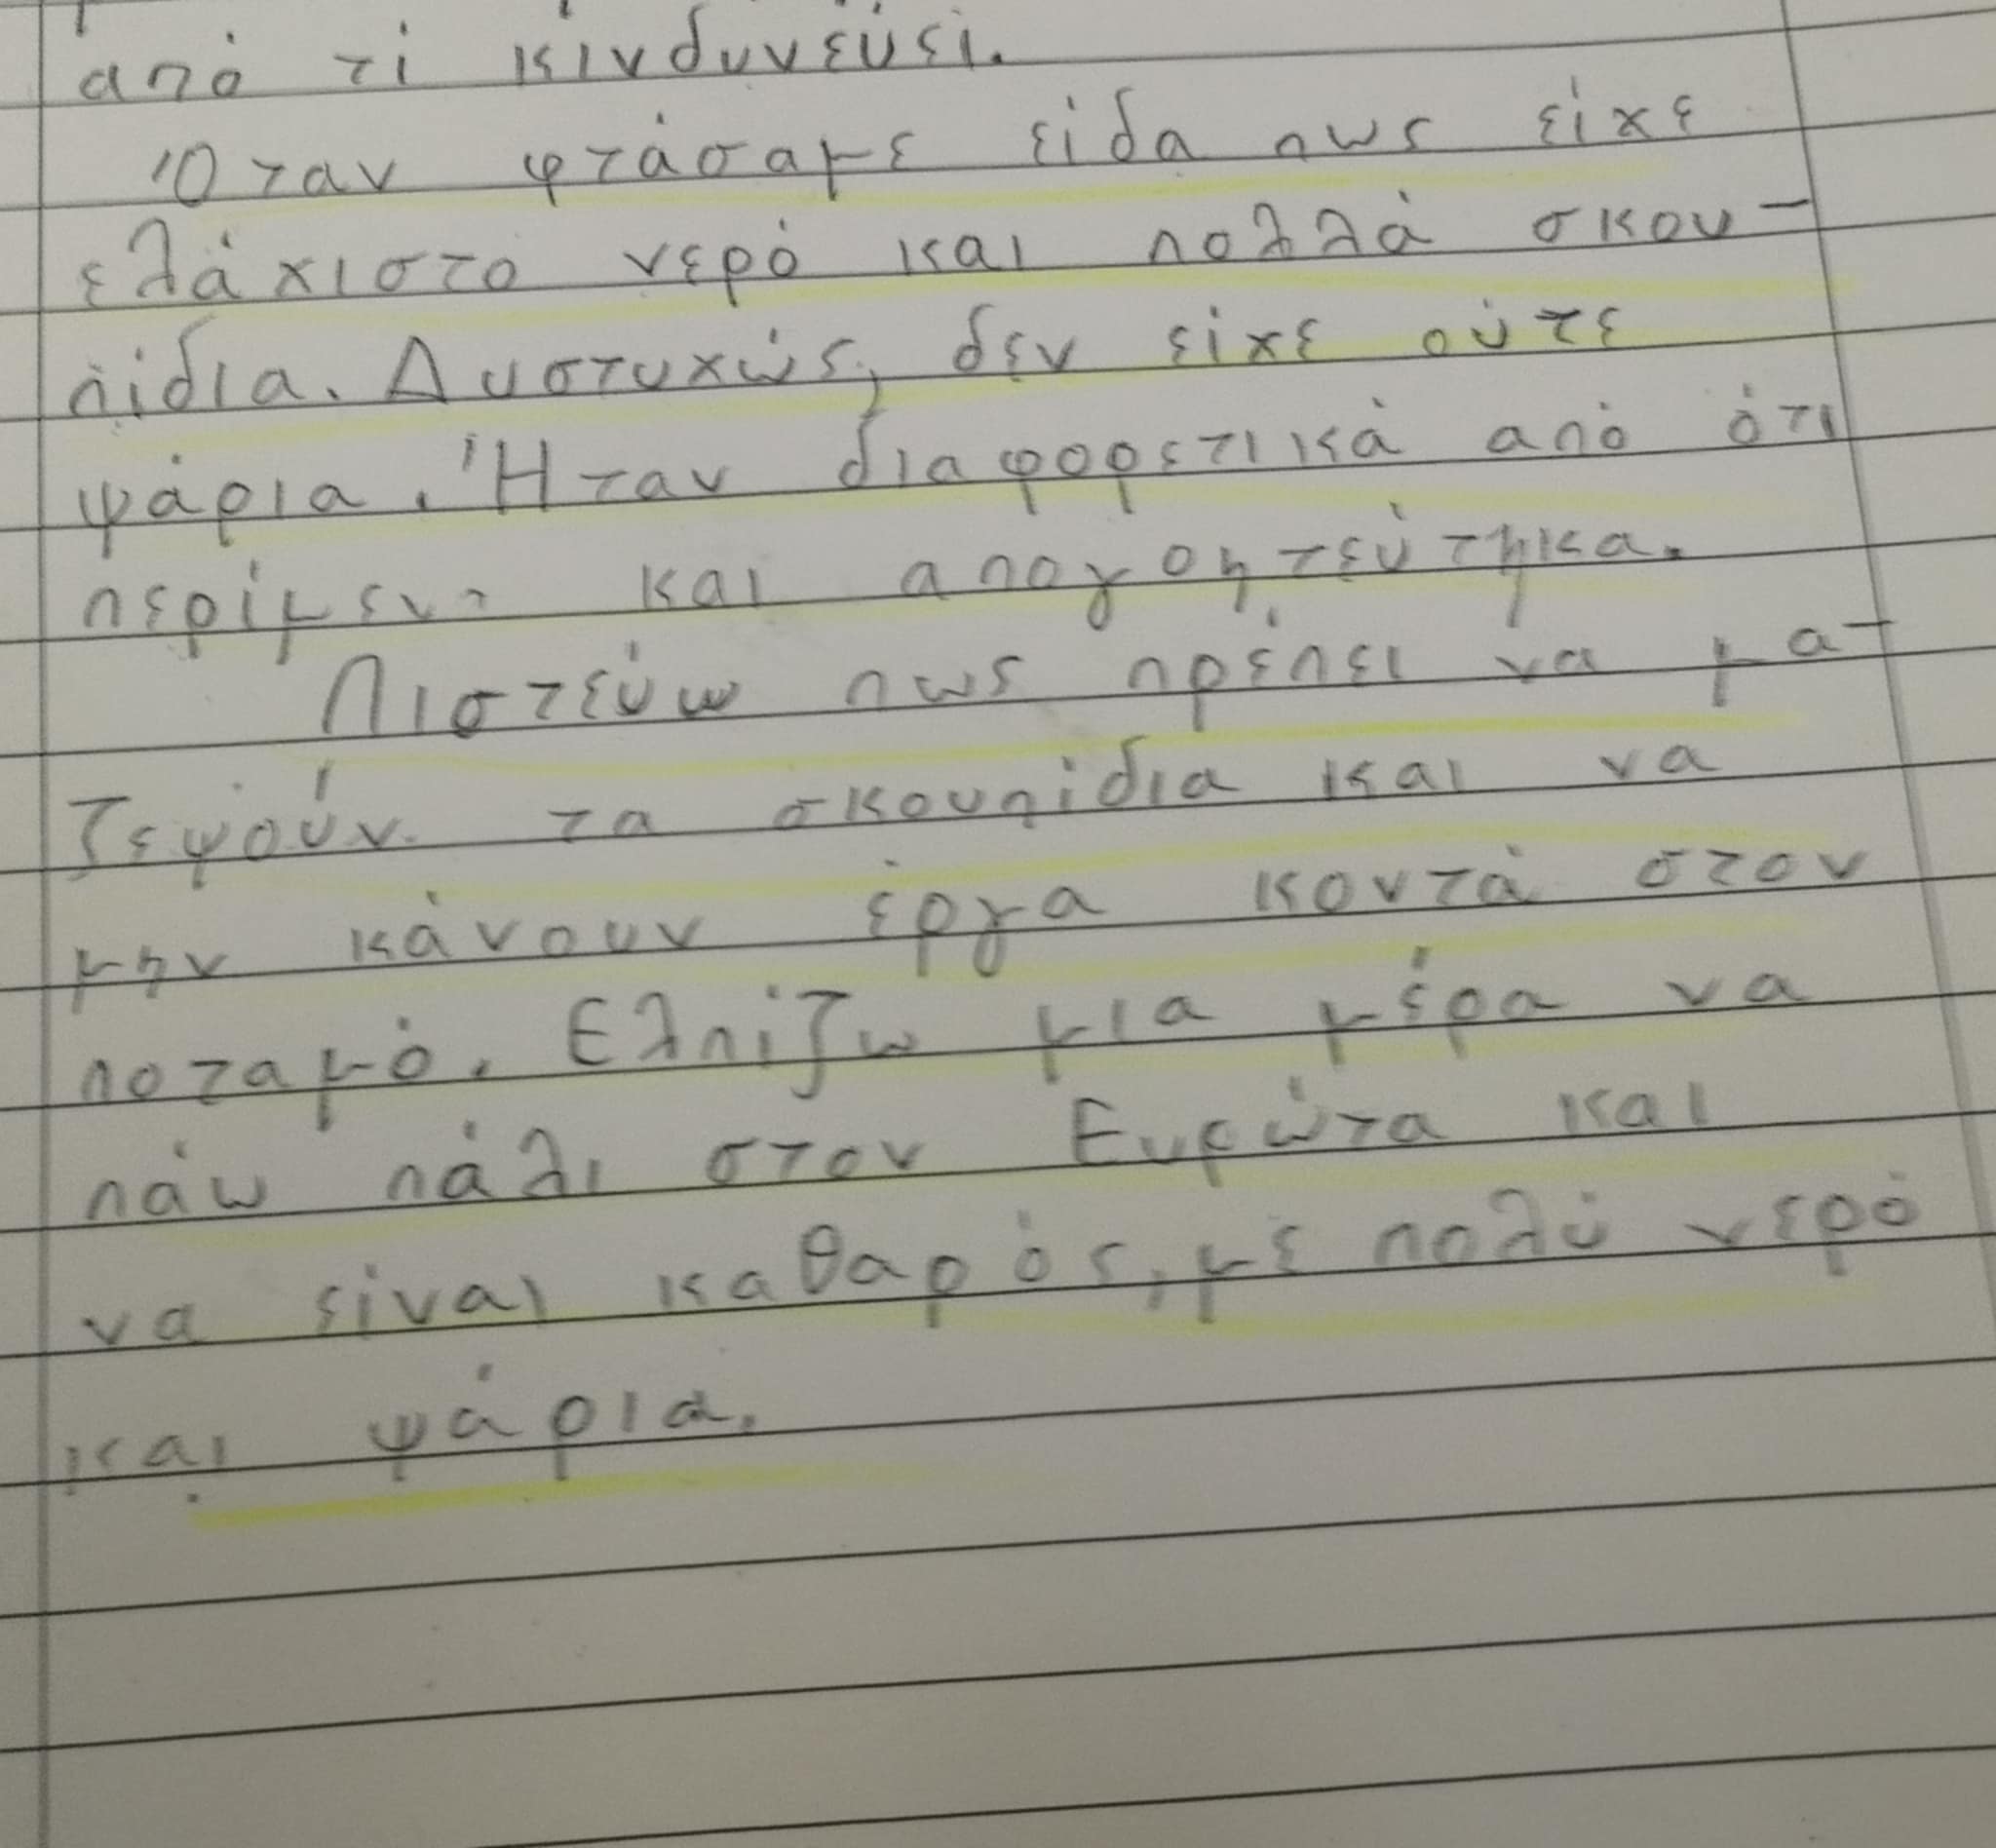 από τί κινδυνεύει.
Όταν φτάσαμε είδα πως είχε
ελάχιστο νερό και πολλά σκου-
πίδια. Δυστυχώς, δεν είχε ούτε
ψάρια. Ήταν διαφορετικά από ότι
περίμενα και απογοητεύτηκα.
Πιστεύω πως πρέπει να μα-
ζεψούν τα σκουπίδια και να
μην κάνουν έργα κοντά στον
ποταμό. Ελπίζω μια μέρα να
πάω πάλι στον Ευρώτα και
να είναι καθαρός, με πολύ νερό
και ψάρια.